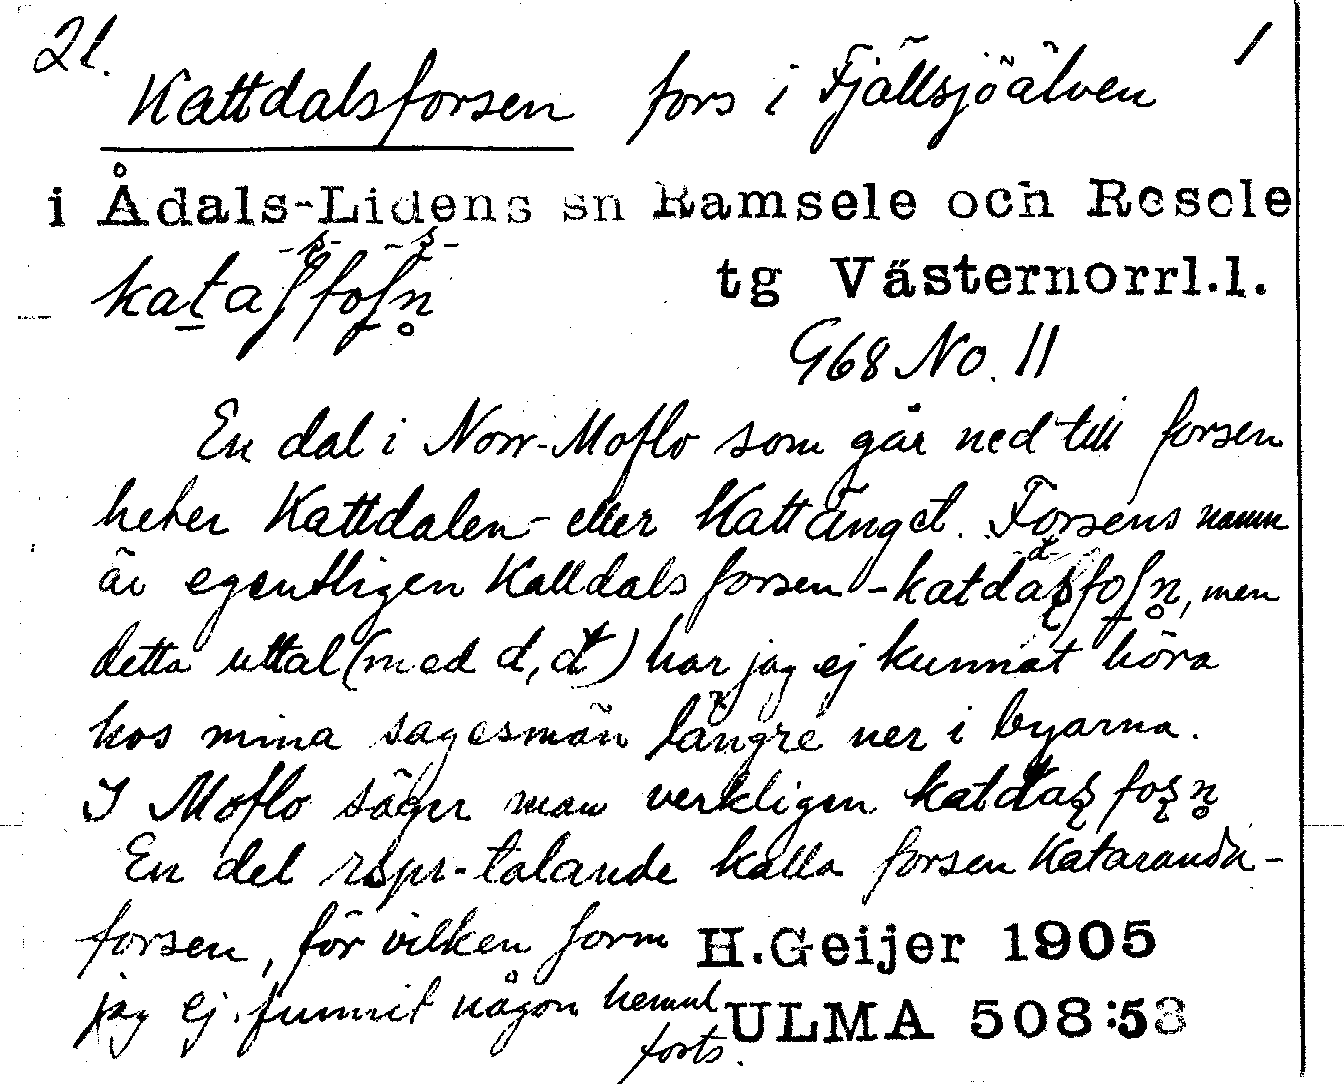 21. 1
Kattdalsforsen fors i Fjällsjöälven
i Ådals-Lidens sn Ramsele och Resele
kataʂfoʂn̥
tg Västernorrl.l.
G68 No. 11
En dal i Norr-Moflo som går ned till forsen
heter Kattdalen- eller Kattänget. Forsens namn
är egentligen Kattdalsforsen -katdaʂfoʂn̥, men
detta uttal (med d, đ) har jag ej kunnat höra
hos mina sagesmän längre ner i byarna.
I Moflo säger man verkligen katdaʂfoʂn̥
En del rspr-talande kalla forsen Kataranda-
forsen, för vilken form
H.Geijer 1905
jag ej funnit någon hemul
ULMA 508:53
forts.